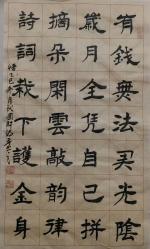 有錢無法買光陰
歲月全凭自己拼
摘朵閑雲敲韵律
詩詞栽下護金身